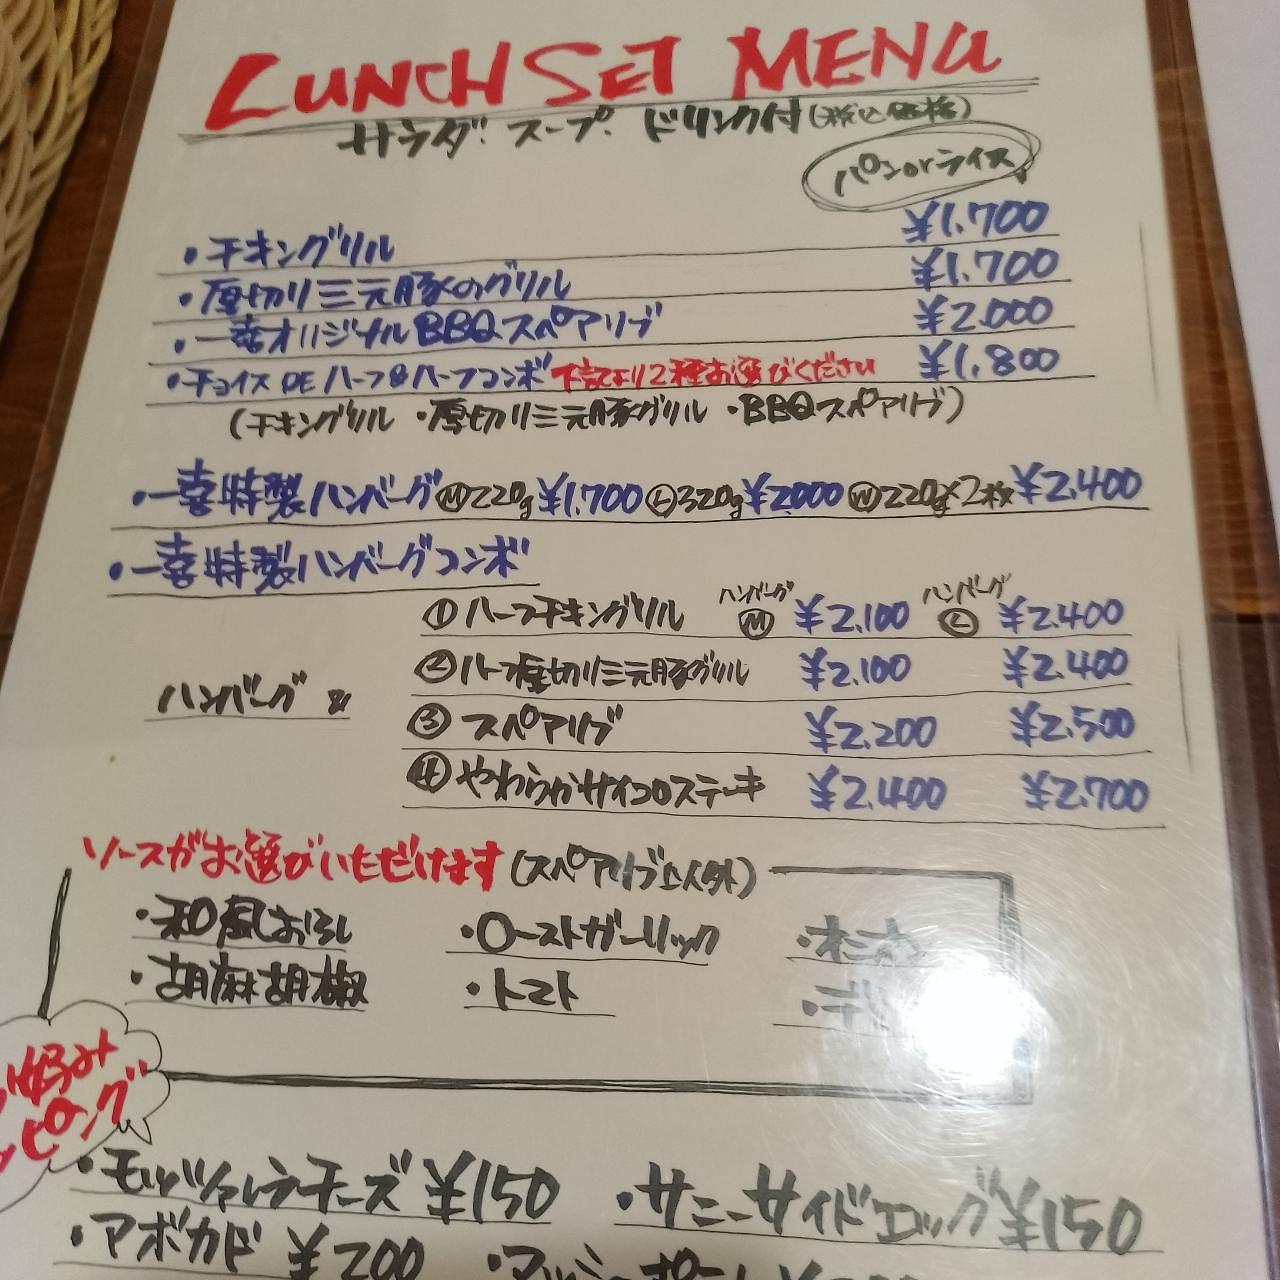 LUNCH SET MENU
サラダ・スープ・ドリンク付(税込価格)
パンorライス
・チキングリル ¥1,700
・厚切り三元豚のグリル ¥1,700
・一喜オリジナルBBQスペアリブ ¥2,000
・チョイス DE ハーフ&ハーフコンボ 下記より2種お選びください ¥1,800
(チキングリル ・厚切り三元豚グリル ・BBQスペアリブ)
・一喜特製ハンバーグ Ⓜ220g ¥1,700 Ⓛ320g ¥2,000 Ⓦ220g×2枚 ¥2,400
・一喜特製ハンバーグコンボ
ハンバーグ &
ハンバーグ Ⓜ ハンバーグ Ⓛ
①ハーフチキングリル ¥2,100 ¥2,400
②ハーフ厚切り三元豚グリル ¥2,100 ¥2,400
③スペアリブ ¥2,200 ¥2,500
④やわらかサイコロステーキ ¥2,400 ¥2,700
ソースがお選びいただけます(スペアリブ以外)
・和風おろし ・ローストガーリック
・胡麻胡椒 ・トマト ・デ
お好み
ッピング
・モッツァレラチーズ ¥150 ・サニーサイドエッグ ¥150
・アボカド ¥200